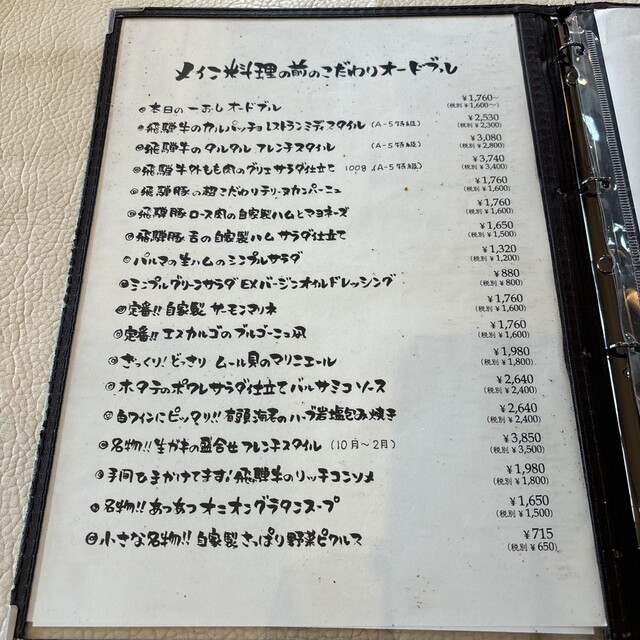 メイン料理の前のこだわりオードブル
◎本日の一おしオードブル ¥1,760〜
(税別¥1,600〜)
◎飛騨牛のカルパッチョ レストランミディスタイル (A-5特級) ¥2,530
(税別¥2,300)
◎飛騨牛のタルタル フレンチスタイル (A-5特級) ¥3,080
(税別¥2,800)
◎飛騨牛外もも肉のグリエ サラダ仕立て 100g (A-5特級) ¥3,740
(税別¥3,400)
◎飛騨豚の超こだわりテリーヌカンパーニュ ¥1,760
(税別¥1,600)
◎飛騨豚ロース肉の自家製ハムとマヨネーズ ¥1,760
(税別¥1,600)
◎飛騨豚舌の自家製ハム サラダ仕立て ¥1,650
(税別¥1,500)
◎パルマの生ハムのシンプルサラダ ¥1,320
(税別¥1,200)
◎シンプルグリーンサラダ EXバージンオイルドレッシング ¥880
(税別¥800)
◎定番!! 自家製 サーモンマリネ ¥1,760
(税別¥1,600)
◎定番!! エスカルゴのブルゴーニュ風 ¥1,760
(税別¥1,600)
◎ぎっくり!どっさり ムール貝のマリニエール ¥1,980
(税別¥1,800)
◎ホタテのポワレサラダ仕立てバルサミコソース ¥2,640
(税別¥2,400)
◎白ワインにピッタリ!! 有頭海老のハーブ岩塩包み焼き ¥2,640
(税別¥2,400)
◎名物!! 生ガキの盛合せフレンチスタイル (10月〜2月) ¥3,850
(税別¥3,500)
◎手間ひまかけてます!飛騨牛のリッチコンソメ ¥1,980
(税別¥1,800)
◎名物!! あつあつオニオングラタンスープ ¥1,650
(税別¥1,500)
◎小さな名物!! 自家製さっぱり野菜ピクルス ¥715
(税別¥650)